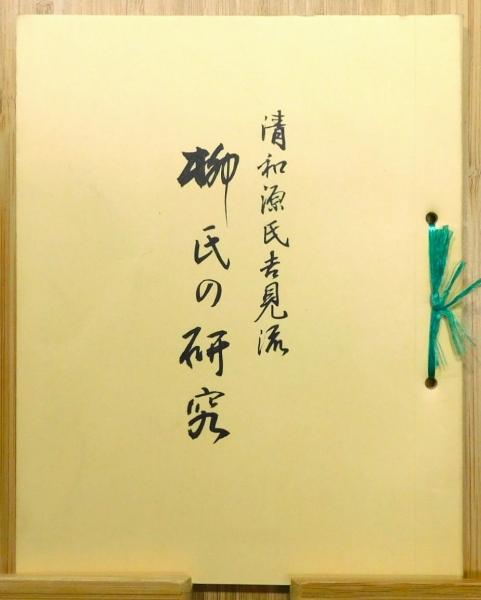 清和源氏吉見流
柳氏の研究